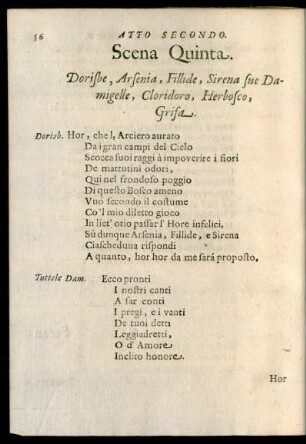 56 ATTO SECONDO.
Scena Quinta.
Dorisbe, Arsenia, Fillide, Sirena sue Da-
migelle, Cloridoro, Herbosco,
Grifa.
Dorisb. Hor, che l, Arciero aurato
Da i gran campi del Cielo
Scocca suoi raggi à impoverire i fiori
De mattutini odori,
Qui nel frondoso poggio
Di questo Bosco ameno
Vuo secondo il costume
Co'l mio diletto gioco
In liet' otio passar l' Hore infelici.
Sù dunque Arsenia, Fillide, e Sirena
Ciascheduna rispondi
A quanto, hor hor da me sarà proposto.
Tuttele Dam. Ecco pronti
I nostri canti
A far conti
I pregi, e i vanti
De tuoi detti
Leggiadretti,
O d' Amore
Inclito honore.
Hor